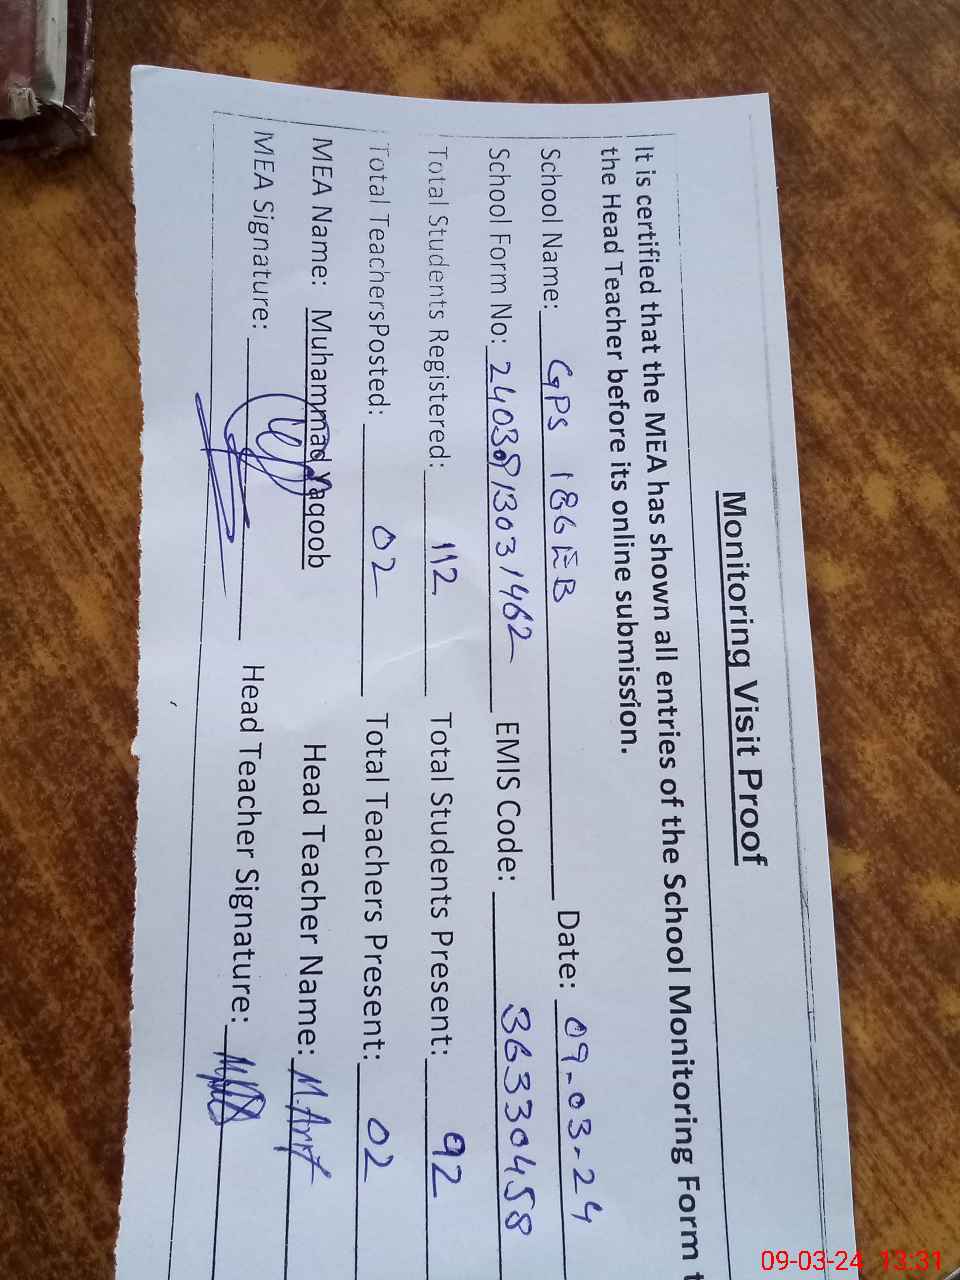 Monitoring Visit Proof
It is certified that the MEA has shown all entries of the School Monitoring Form t
the Head Teacher before its online submission.
School Name: GPS 186 EB Date: 09-03-24
School Form No: 2403813031462 EMIS Code: 36330458
Total Students Registered: 112 Total Students Present: 92
Total TeachersPosted: 02 Total Teachers Present: 02
MEA Name: Muhammad Yaqoob Head Teacher Name: M.
MEA Signature: Head Teacher Signature:
09-03-24 13:31